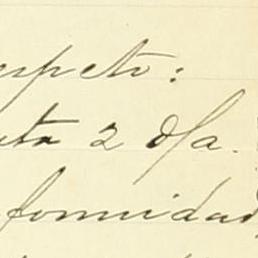 espeto:
uta 2 d/a.
formidad